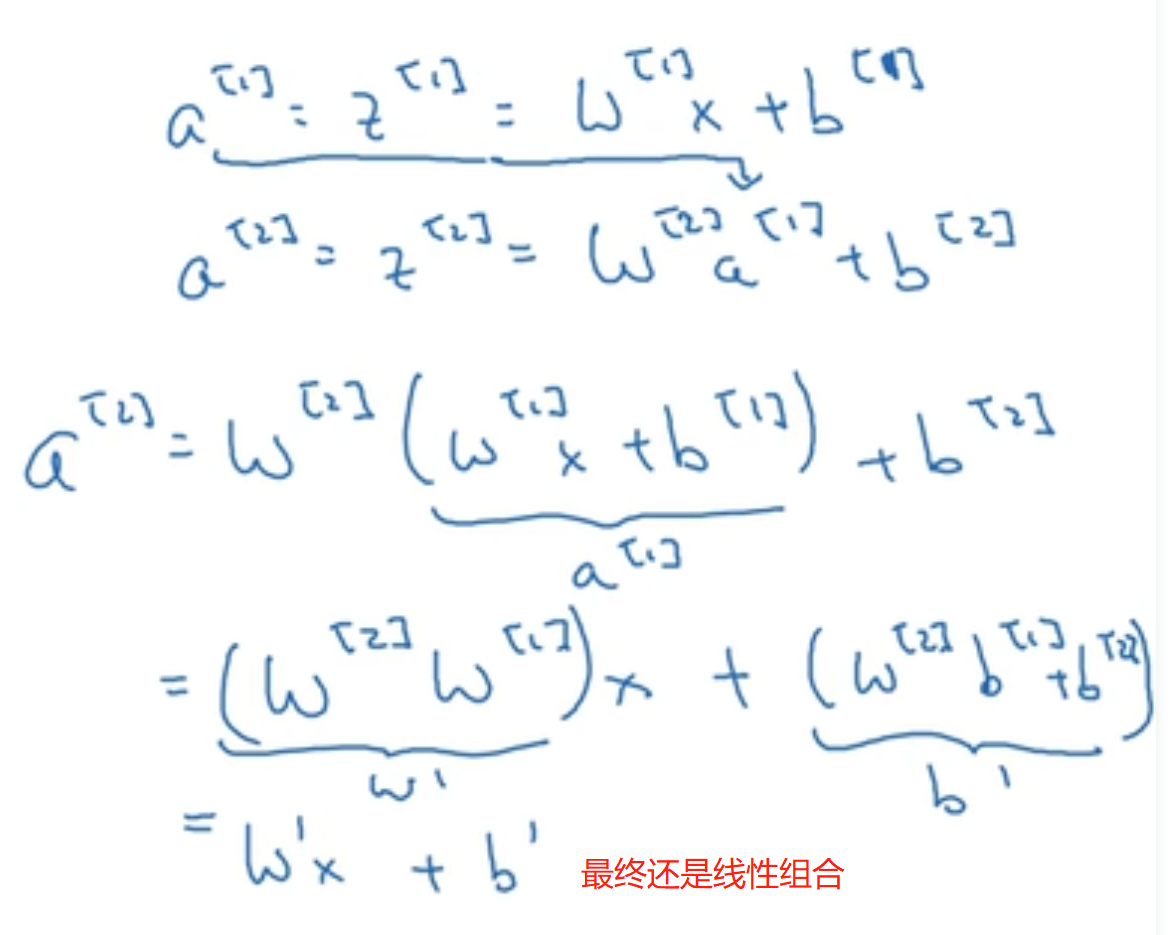 a^[1] = z^[1] = W^[1] x + b^[1]
a^[2] = z^[2] = W^[2] a^[1] + b^[2]
a^[2] = W^[2] (W^[1] x + b^[1]) + b^[2]
a^[1]
= (W^[2] W^[1]) x + (W^[2] b^[1] + b^[2])
W' b'
= W'x + b' 最终还是线性组合